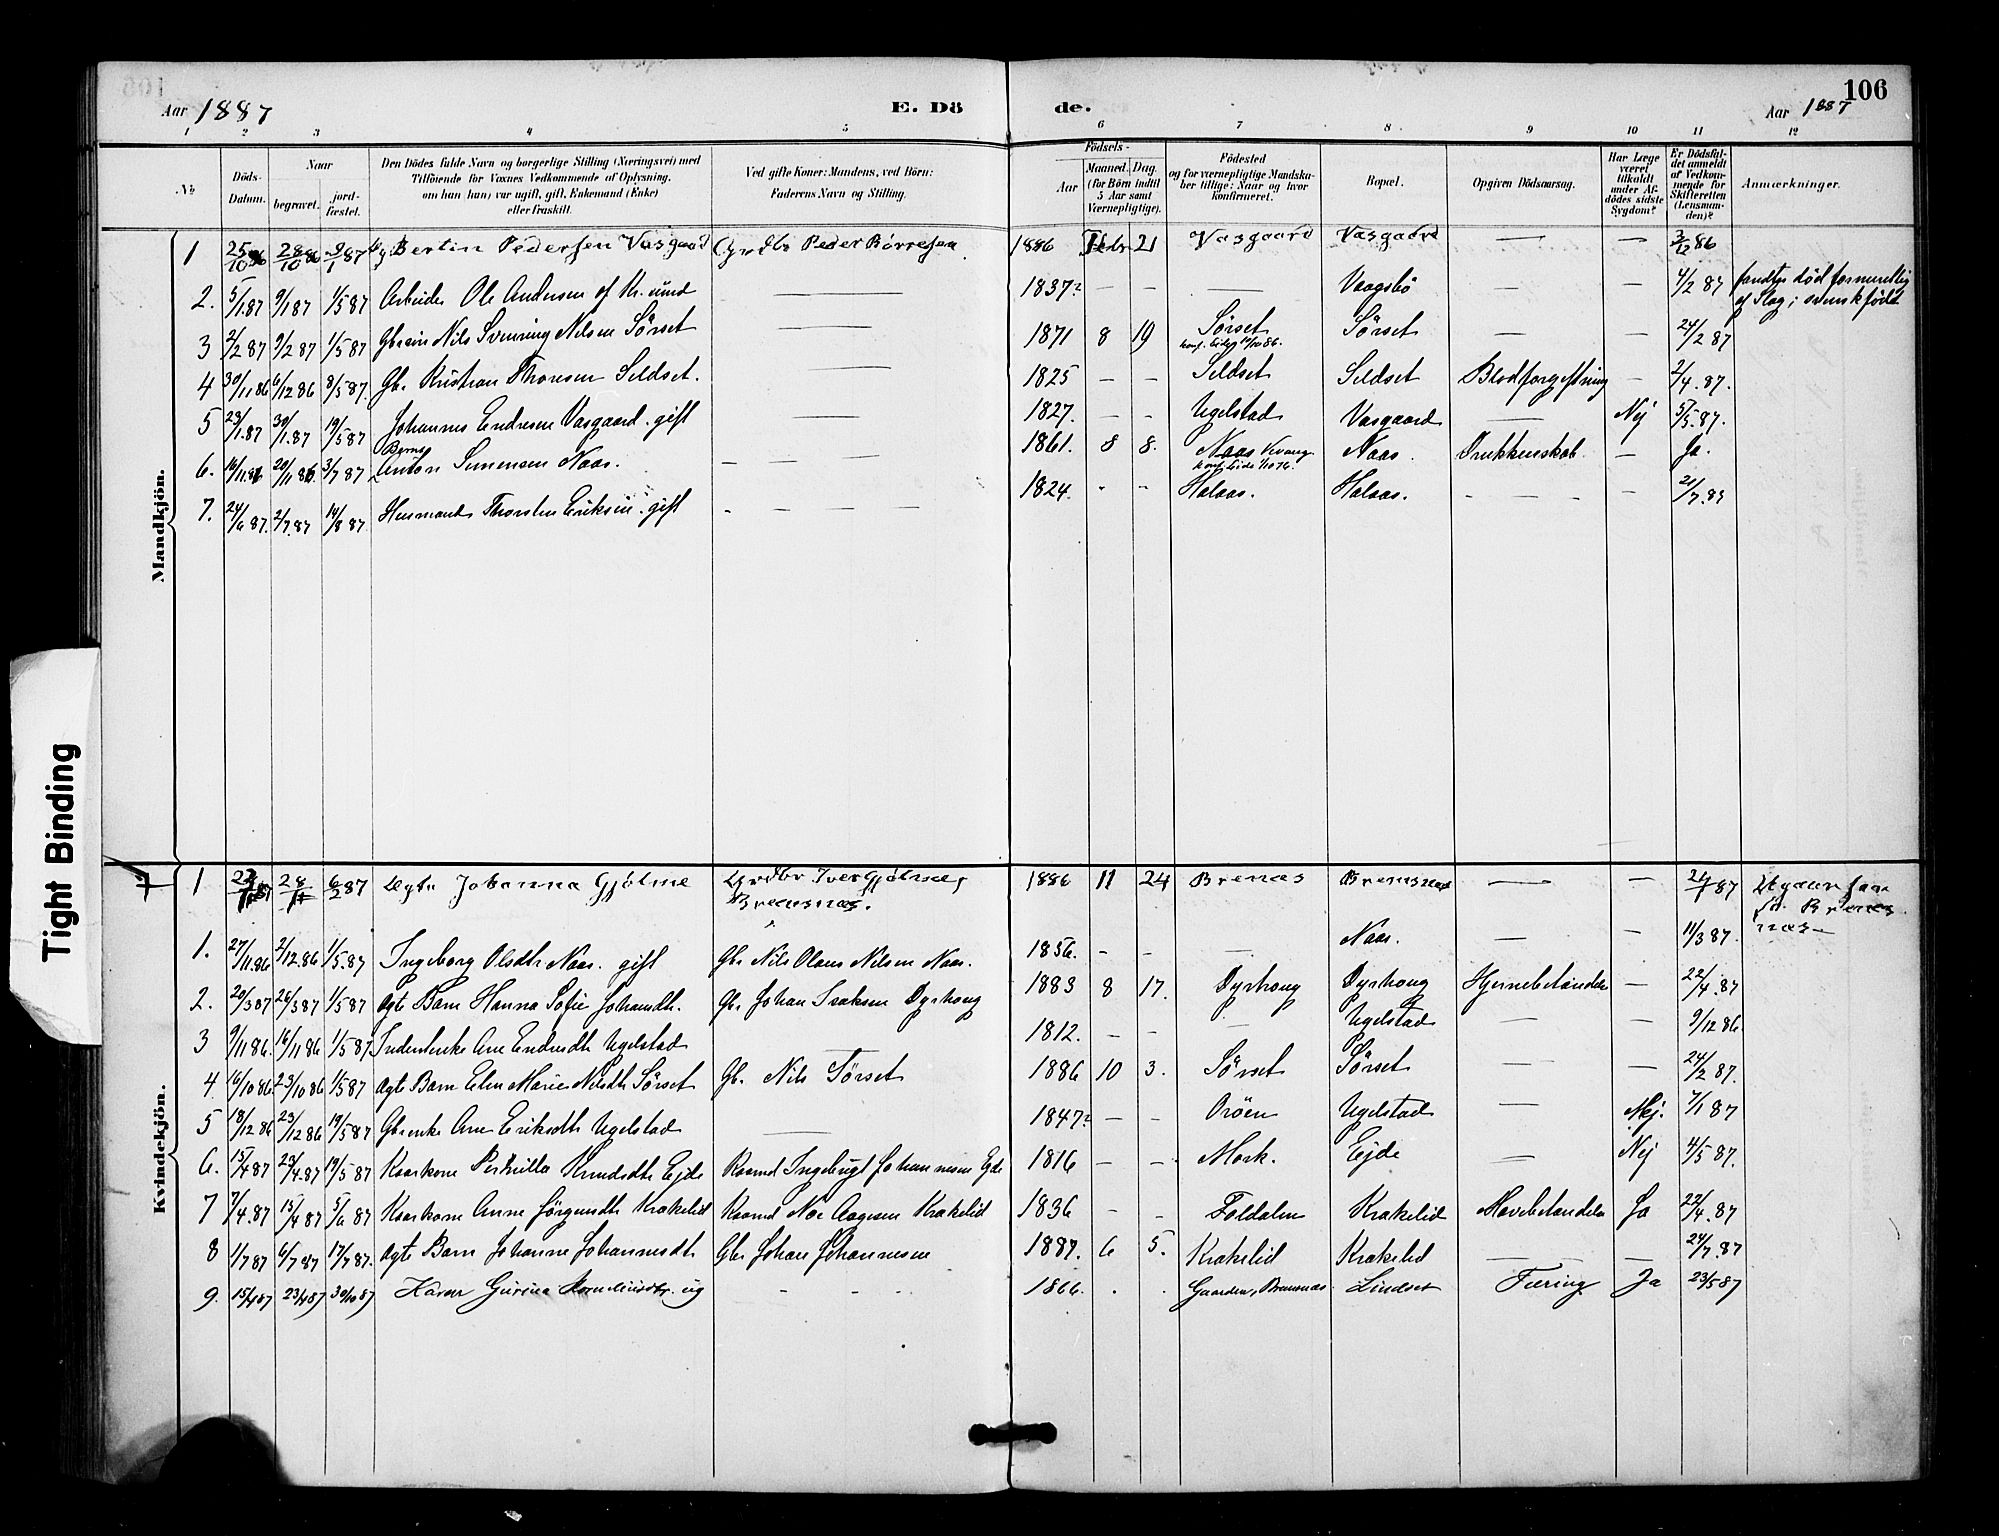 106
Aar 1887 E. Dö de. Aar 1887
1 2 3 4 5 6 7 8. 9 10 11 12
№ Döds-Datum. Naar begravet. jord-fæstet. Den Dödes fulde Navn og borgerlige Stilling (Næringsvei) med Tilföiende for Voxnes Vedkommende af Oplysning, om han (hun) var ugift, gift, Enkemand (Enke) eller fraskilt. Ved gifte Koner: Mandens, ved Börn: Faderens Navn og Stilling. Födsels- Aar Maaned. Dag. (for Börn indtil 5 Aar samt Værnepligtige). Födested og for værnepligtige Mandskaber tillige: Naar og hvor konfirmeret. Bopæl. Opgiven Dödsaarsag. Har Læge været tilkaldt under Afdödes sidste Sygdom? Er Dödsfaldet anmeldt af Vedkommende for Skifteretten (Lensmanden)? Anmærkninger.
Mandkjön.
1 25/10 86 28/10 86 9/1 87 Bertin Pedersen Vasgaard Grdbr Peder Börresen 1886 Febr 21 Vasgaard Vasgaard — — 3/12 86
2. 5/1.87 9/1 87 1/5 87 Arbeider Ole Andersen af Kr.sund — 1837? — — — Vaagsbö — — 4/2 87 fandtes död formentlig af Slag; svenskfödt
3 2/2 87 9/2 87 1/5 87 Nils Svenning Nilsen Sörset — 1871 8 19 Sörset Sörset — — 24/2 87
4 30/11 86 6/12 86 8/5 87. Gbr. Kristian Thoresen Seldset. — 1825 — — Seldset Seldset Blodforgiftning — 2/4.87.
5 23/1.87 30/1.87 19/5 87 Johannes Endresen Vasgaard. gift — 1827. — — Ugelstad Vasgaard — Nej 5/5.87.
6. 16/11.86 20/11 86. 3/7 87 Anton Simensen Naas. — — — — 1861. 8 8. Naas Kvang Naas. Drukkenskab — Ja.
7. 24/6 87. 2/7.87 14/8 87 Husmand Thorsten Eriksen. gift — — — — 1824. - - Halaas. Halaas. — — — —
Kvindekjön.
1 6/2 87 Ægte Johanna Gjölme Grdbr Iver Gjölmes Bremsnæs. 1886 11 24 Brenæs Bremsnæs — —
1. 27/11.86 2/12.86 1/5.87 Ingeborg Olsdtr Naas. gift Gbr Nils Olaus Nilsen Naas. 1856. — — — Naas. — — 11/3 87.
2. 20/3 87 26/3 87 1/5 87 Ægte Barn Hanna Sofie Johansdtr. Gbr Johan Isaksen Dyrhaug 1883 8 17. Dyrhaug Dyrhaug Hjernebetændelse — 22/4.87
3 9/11 86. 16/11 86 1/5 87 Inderstenke Ane Endresdtr Ugelstad — 1812. — — — Ugelstad — — 9/12 86
4. 16/10 86. 23/10 86 1/5 87 Ægte Barn Elen Marie Nilsdtr Sörset Gbr. Nils Sörset 1886 10 3. Sörset Sörset — — 24/2 87.
5 18/12 86 23/12 86 19/5 87 Gbr enke Ane Eriksdtr Ugelstad — 1847? — — Oröen Ugelstad — Nej. 7/1 87
6. 15/4 87 23/4.87 19/5 87 Kaarkone Pernille Knudsdtr Ejde Kaarmd Ingebrigt Johannesen Ejde 1816 — — Mork. Ejde — Nej 4/5 87.
7 7/4.87 15/4 87 5/6 87 Kaarkone Anne Jörgensdtr Krakelid Kaarmd Noe Aagesen Krakelid 1836 - - Foldalen Krakelid Mavebetændelse Ja 22/4.87
8 1/7 87 6/7 87 17/7 87. Ægte Barn Johanne Johannesdtr Gbr Johan Johannesen 1887. 6 5. Krakelid Krakelid — — 24/7.87
9. 15/4 87 23/4 87 30/10 87 Karen Gurina Korneliusdtr. ug — — — 1866. . . Gaarden, Bremsnæs Lindset Tæring Ja 23/5 87
Tight Binding